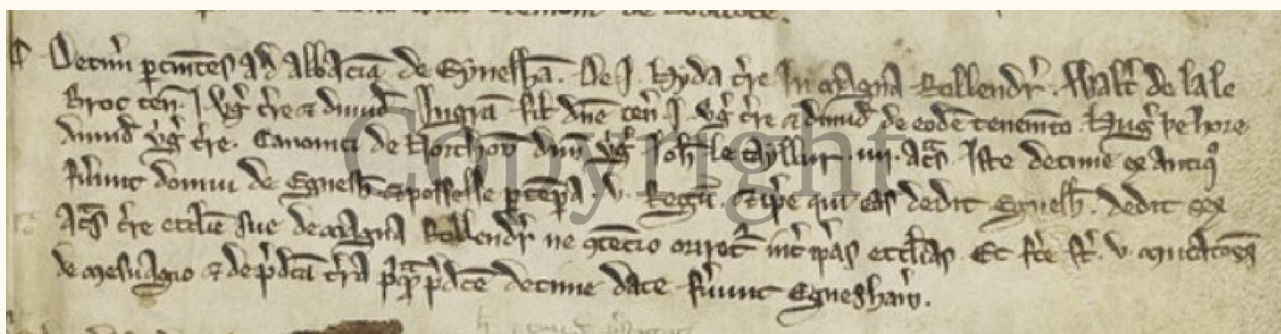 Decim̄ ꝑtinētes ad abbaciā de Eynesh̄a. De .I. Hyda t̄re in magna Rollendr̄. Walt̄ de la le
Broc ten̄ .I. v̄g t̄re & dimid̄ Ingrā fil̄ dn̄e ten̄ .I. v̄g t̄re & dimid̄ de eodē tenemēto. Huḡ pe hore
dimid̄ v̄g t̄re. Canonici de Northon̄ dim̄ v̄g Ioh̄ le Ayllur .iiii. ac̄s. Iste decime ex antiq̄
fūunt domui de Egnesh̄ & possesse ꝑ tēpa .v. Regū. & ip̄e qui eas dedit Egnesh̄. dedit sex
ac̄s t̄re eccl̄ie sue de magna Rollendr̄ ne ꝯtēcio orirēt̄ int̄ ip̄as eccl̄ias. Et st̄ .v.
de mesuagio & de p̄dcā t̄ra p̄dcē decime date fūunt Egnesham̄.